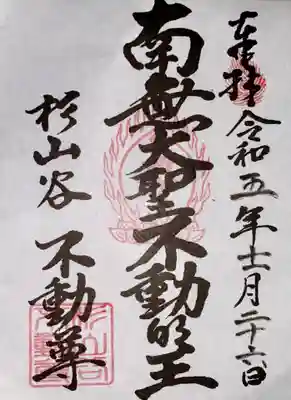 奉拝 令和五年十二月二十六日
南無大聖不動明王
杉山谷 不動尊